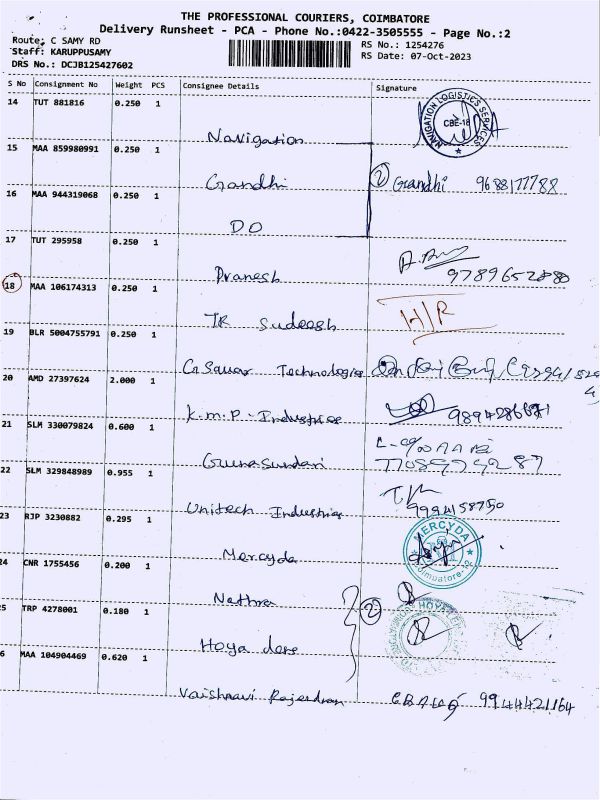 THE PROFESSIONAL COURIERS, COIMBATORE
Delivery Runsheet - PCA - Phone No.:0422-3505555 - Page No.:2
Route: C SAMY RD
Staff: KARUPPUSAMY
DRS No.: DCJB125427602
RS No.: 1254276
RS Date: 07-Oct-2023
S No Consignment No Weight PCS Consignee Details Signature
14 TUT 881816 0.250 1
Navigation
NAVIGATION LOGISTICS SERVICES
CBE-18
15 MAA 859980991 0.250 1
Gandhi
2 Gandhi 9688177788
16 MAA 944319068 0.250 1
DO
17 TUT 295958 0.250 1
Pranesh
9789652880
18 MAA 106174313 0.250 1
TR Sudeesh
H/R
19 BLR 5004755791 0.250 1
Technologies
20 AMD 27397624 2.000 1
K.M.P. Industries
21 SLM 330079824 0.600 1
Gunasundari
22 SLM 329848989 0.955 1
Unitech Industries
9994158750
23 RJP 3230882 0.295 1
Mercyda
MERCYDA
Coimbatore-12
24 CNR 1755456 0.200 1
Nethra
25 TRP 4278001 0.180 1
Hoya dens
2
HOYA
26 MAA 104904469 0.620 1
Vaishnavi Rajendran
9944421164